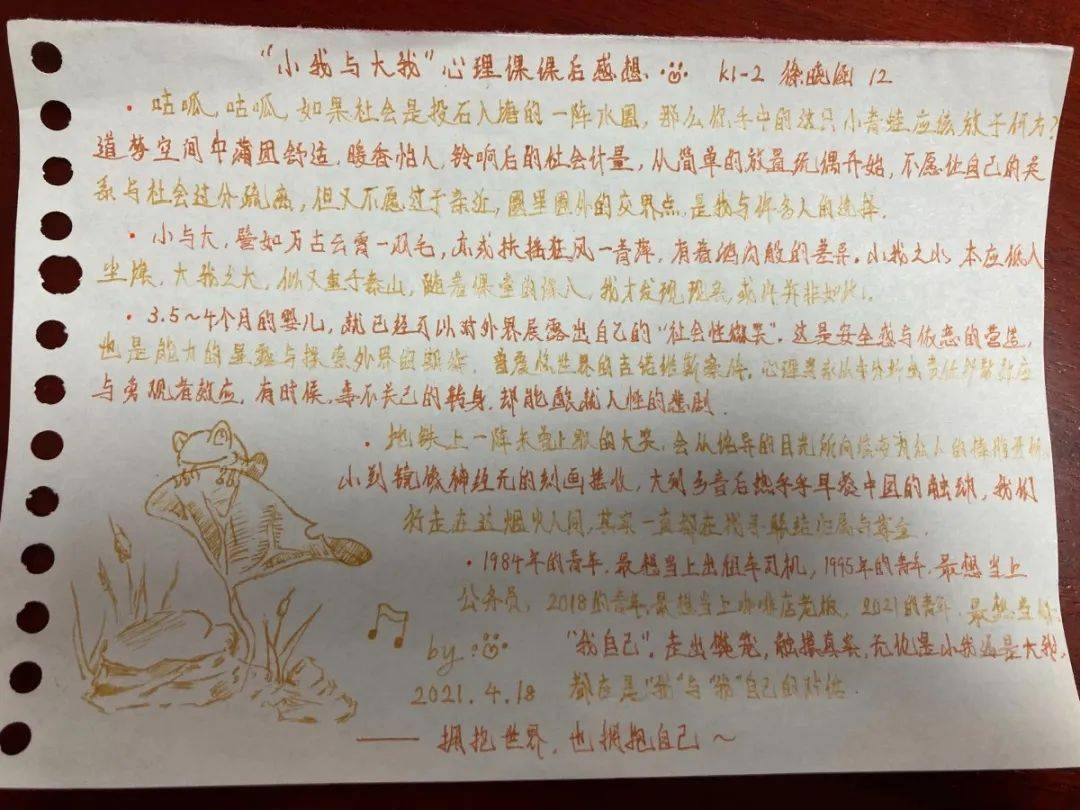 "小我与大我"心理课课后感想 K1-2 徐 涵 12
·咕呱,咕呱,如果社会是投石入塘的一阵水圈,那么你手中的这只小青蛙应该放于何方?
道梦空间中蒲团舒适,暖香怡人,铃响后的社会计量,从简单的放置玩偶开始,不愿让自己的关
系与社会过分疏离,但又不愿过于亲近,圈里圈外的交界点,是我与许多人的选择.
·小与大,譬如万古云霄一双毛,亦或扶摇狂风一青萍,有着鸿沟般的差异。小我之小,本应低入
尘埃,大我之大,似又重于泰山,随着课堂的深入,我才发现,现象,或许并非如此.
·3.5~4个月的婴儿,就已经可以对外界展露出自己的"社会性微笑".这是安全感与依恋的营造,
也是能力的显露与探索外界的
与旁观者效应,有时候,事不关己的转身,却能酿就人性的悲剧.
·地铁上一阵 的大笑,会从诧异的目光
小到镜像神经元的刻画接收,大到 热乎乎早餐中国的触动,我们
行走在这烟火人间,其实一直都在找寻联结归属与
·1984年的青年,最想当上出租车司机,1995年的青年,最想当上
公务员,2018的青年,最想当上咖啡店老板,2021的青年,最想当
"我自己".走出 笼,触摸真实,无论是小我还是大我,
都在是"我"与"我"自己的
by
2021.4.18
—— 拥抱世界,也拥抱自己~